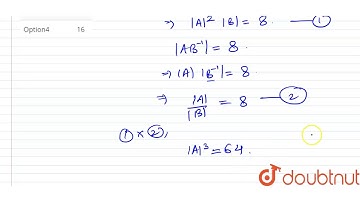 ⇒ |A|² |B| = 8. — ①
Option4 16
|AB⁻¹| = 8.
⇒ |A| |B⁻¹| = 8
⇒ |A|/|B| = 8 — ②
① × ②,
|A|³ = 64.
doubtnut